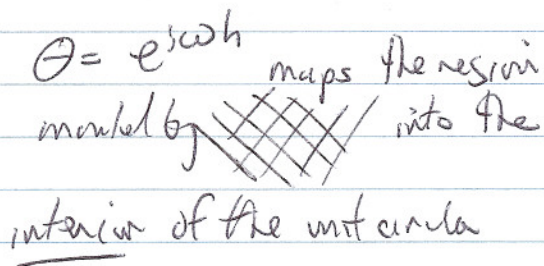 θ = e^{iωh} maps the region
marked by into the
interior of the unit circle